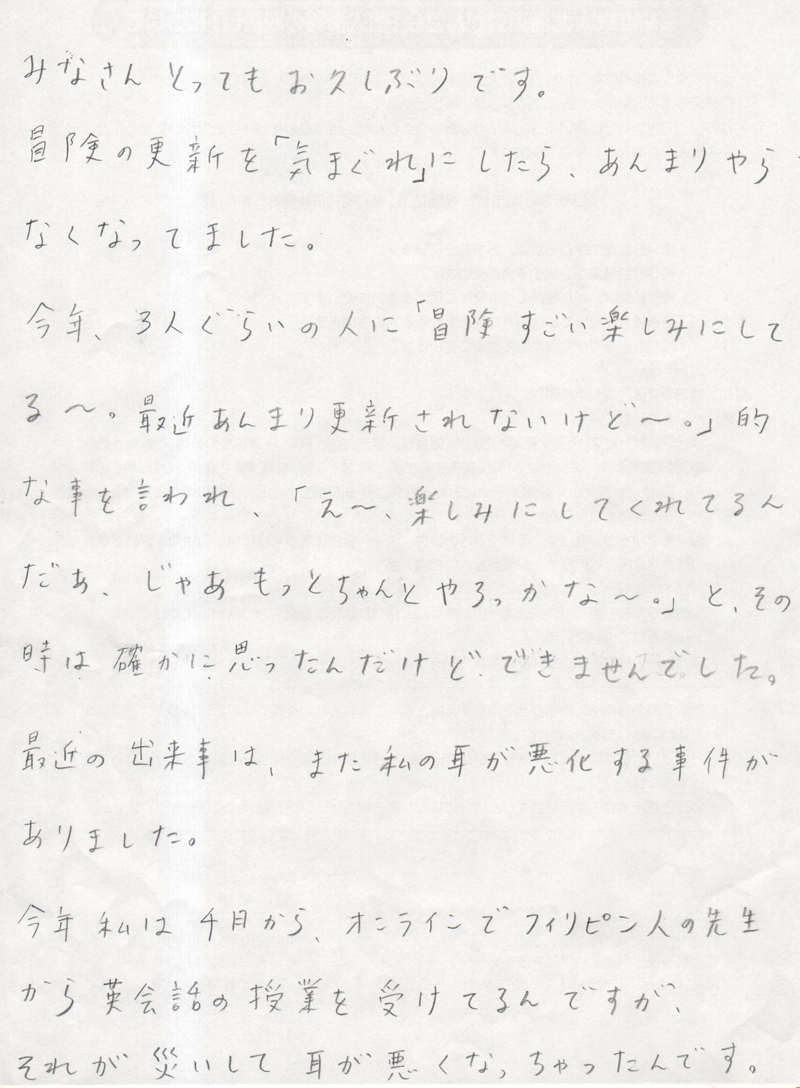 みなさん とっても お久しぶりです。
冒険の更新を「気まぐれ」にしたら、あんまりやら
なくなってました。
今年、3人ぐらいの人に「冒険すごい楽しみにして
る〜。最近あんまり更新されないけど〜。」的
な事を言われ、「え〜、楽しみにしてくれてるん
だぁ、じゃあもっとちゃんとやろっかな〜。」と、その
時は確かに思ったんだけど、できませんでした。
最近の出来事は、また私の耳が悪化する事件が
ありました。
今年私は4月から、オンラインでフィリピン人の先生
から英会話の授業を受けてるんですが、
それが災いして耳が悪くなっちゃったんです。